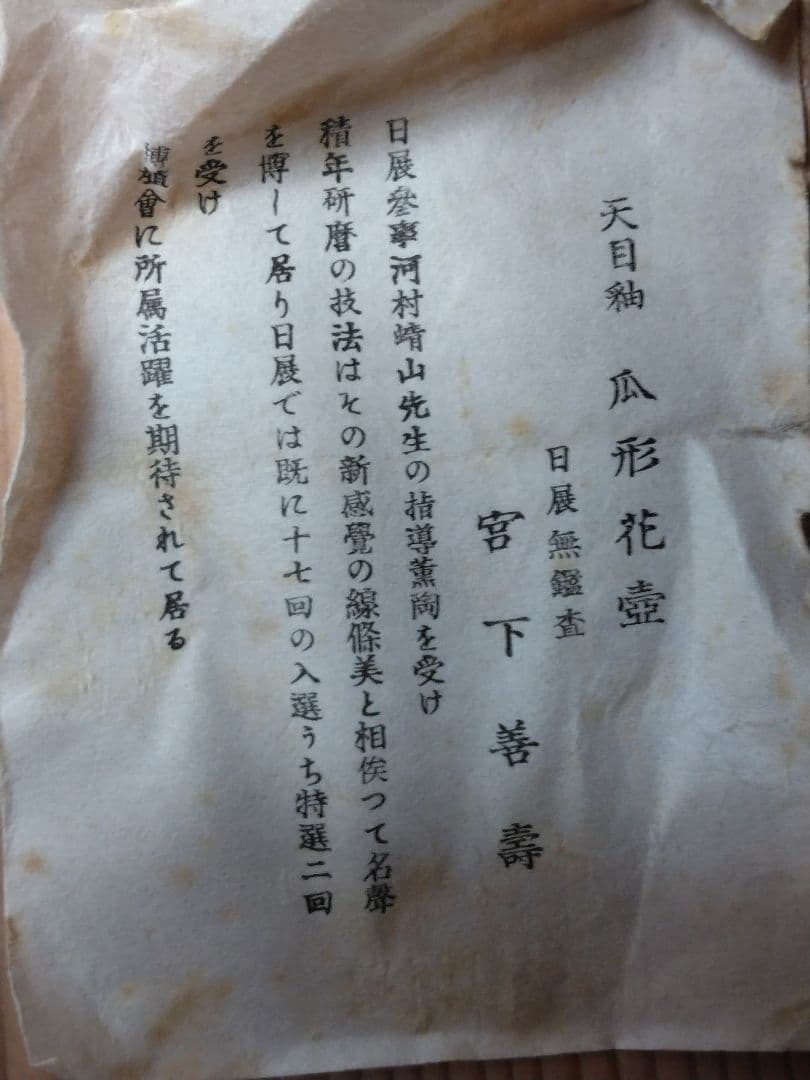 天目釉　瓜形花壺
日展無鑑査
宮下善壽
日展參事河村蜻山先生の指導薫陶を受け
積年研磨の技法はその新感覺の線條美と相俟つて名聲
を博して居り日展では既に十七回の入選うち特選二回
を受け
會に所属活躍を期待されて居る